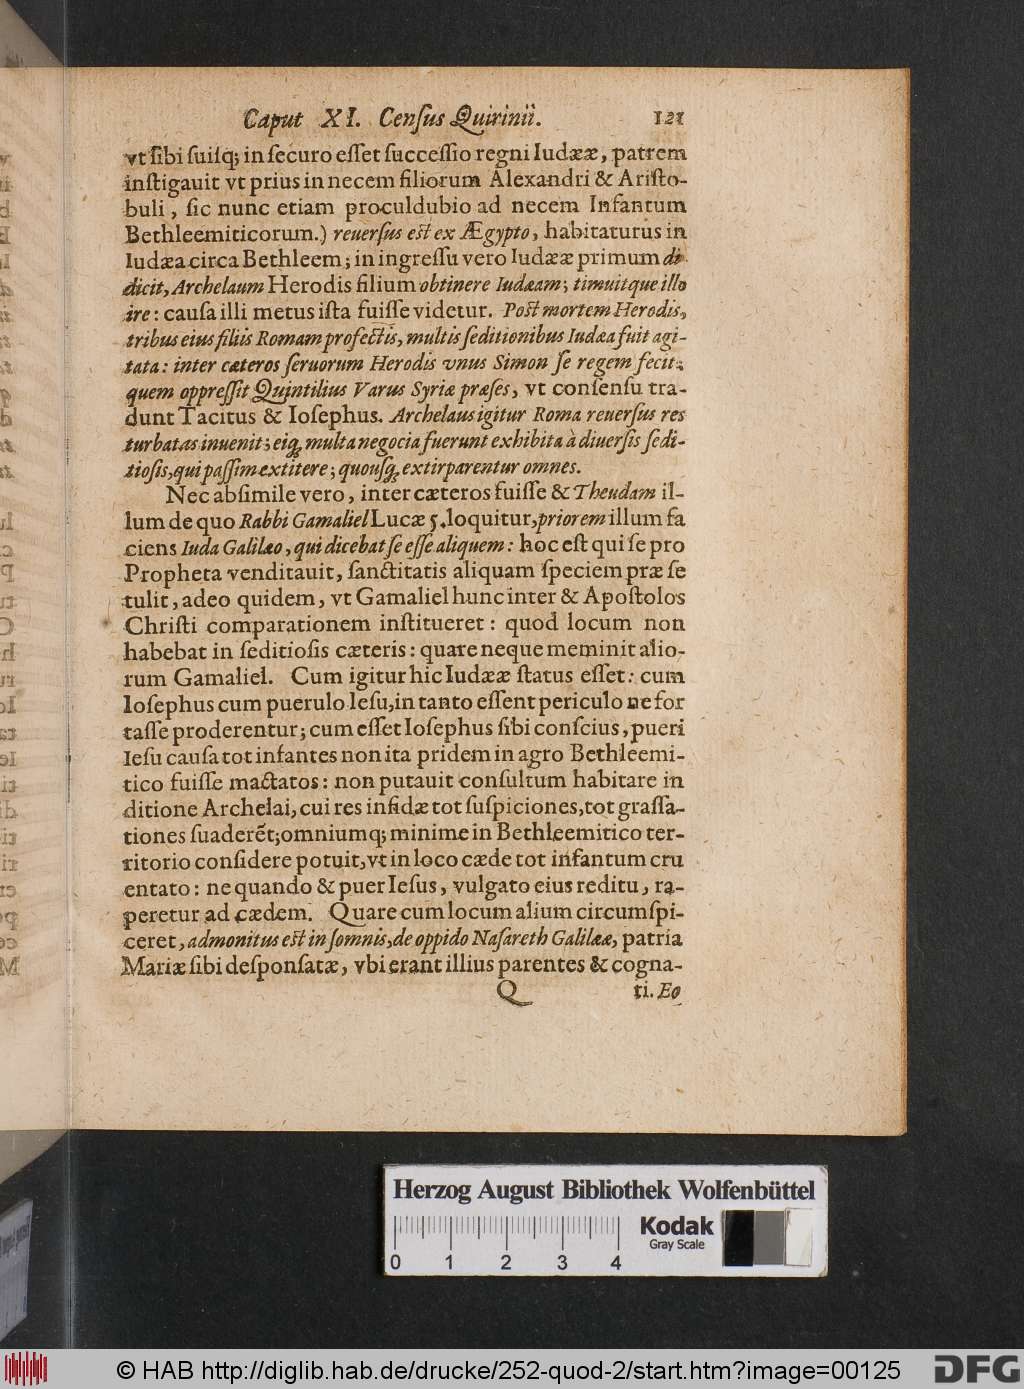 Caput XI. Cenſus Quirinii. 121
vt ſibi ſuiſq; in ſecuro eſſet ſucceſſio regni Iudææ, patrem
inſtigauit vt prius in necem filiorum Alexandri & Ariſto-
buli, ſic nunc etiam proculdubio ad necem Infantum
Bethleemiticorum.) reuerſus est ex Ægypto, habitaturus in
Iudæa circa Bethleem; in ingreſſu vero Iudææ primum di-
dicit, Archelaum Herodis filium obtinere Iudæam; timuitque illo
ire: cauſa illi metus iſta fuiſſe videtur. Post mortem Herodis,
tribus eius filiis Romam profectis, multis ſeditionibus Iudæa fuit agi-
tata: inter cæteros ſeruorum Herodis vnus Simon ſe regem fecit;
quem oppreſſit Quintilius Varus Syriæ præſes, vt conſenſu tra-
dunt Tacitus & Ioſephus. Archelaus igitur Roma reuerſus res
turbatas inuenit; eiq; multa negocia fuerunt exhibita à diuerſis ſedi-
tioſis, qui paſſim extitere; quouſq; extirparentur omnes.
Nec abſimile vero, inter cæteros fuiſſe & Theudam il-
lum de quo Rabbi Gamaliel Lucæ 5. loquitur, priorem illum fa
ciens Iuda Galilæo, qui dicebat ſe eſſe aliquem: hoc eſt qui ſe pro
Propheta venditauit, ſanctitatis aliquam ſpeciem præ ſe
tulit, adeo quidem, vt Gamaliel hunc inter & Apoſtolos
Chriſti comparationem inſtitueret: quod locum non
habebat in ſeditioſis cæteris: quare neque meminit alio-
rum Gamaliel. Cum igitur hic Iudææ ſtatus eſſet: cum
Ioſephus cum puerulo Ieſu, in tanto eſſent periculo ne for
taſſe proderentur; cum eſſet Ioſephus ſibi conſcius, pueri
Ieſu cauſa tot infantes non ita pridem in agro Bethleemi-
tico fuiſſe mactatos: non putauit conſultum habitare in
ditione Archelai, cui res infidæ tot ſuſpiciones, tot graſſa-
tiones ſuaderẽt; omniumq; minime in Bethleemitico ter-
ritorio conſidere potuit, vt in loco cæde tot infantum cru
entato: ne quando & puer Ieſus, vulgato eius reditu, ra-
peretur ad cædem. Quare cum locum alium circumſpi-
ceret, admonitus est in ſomnis, de oppido Naſareth Galilææ, patria
Mariæ ſibi deſponſatæ, vbi erant illius parentes & cogna-
Q ti. Eo
Herzog August Bibliothek Wolfenbüttel
0 1 2 3 4
Kodak
Gray Scale
© HAB http://diglib.hab.de/drucke/252-quod-2/start.htm?image=00125
DFG